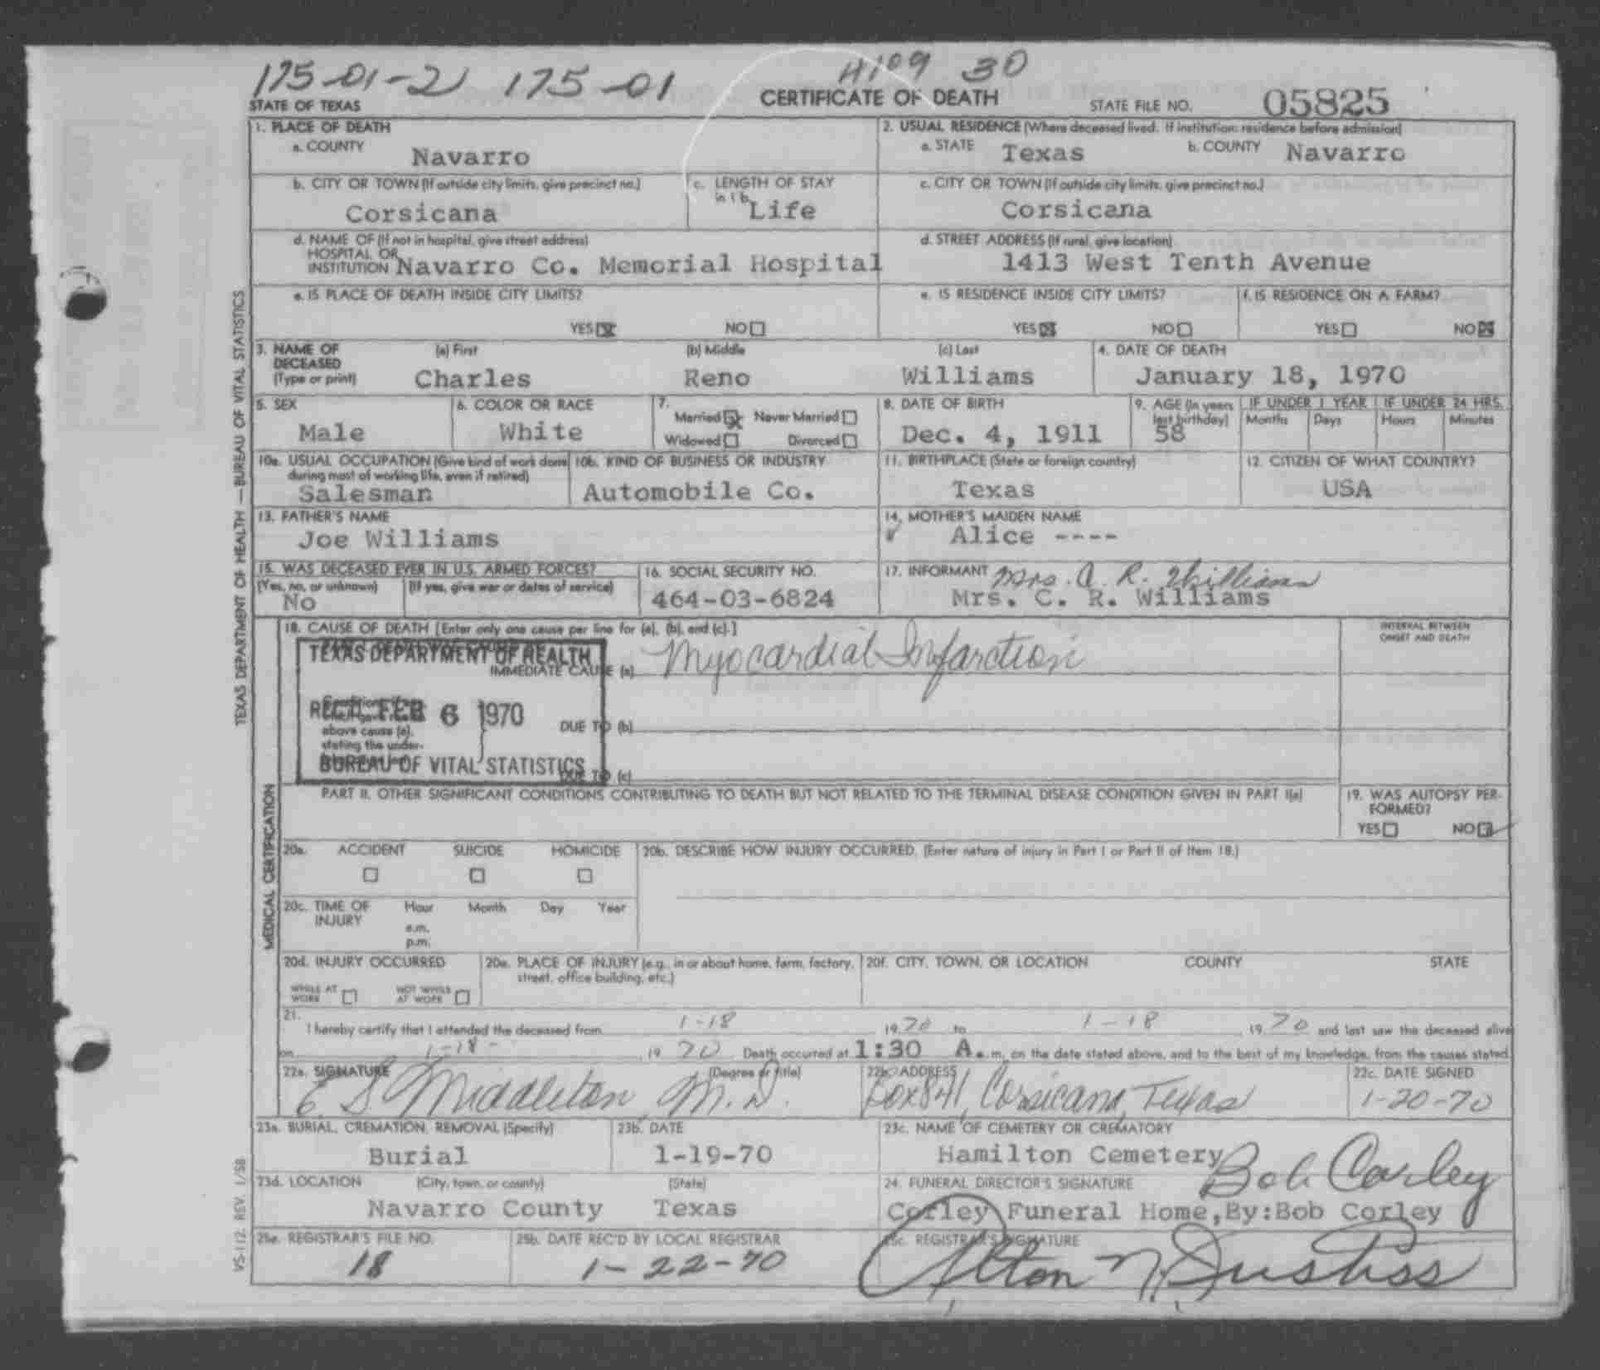 175-01-2 175-01 H109 30
STATE OF TEXAS CERTIFICATE OF DEATH STATE FILE NO. 05825
1. PLACE OF DEATH
a. COUNTY Navarro
2. USUAL RESIDENCE (Where deceased lived. If institution: residence before admission)
a. STATE Texas b. COUNTY Navarro
b. CITY OR TOWN (If outside city limits, give precinct no.) Corsicana
c. LENGTH OF STAY in 1 b. Life
c. CITY OR TOWN (If outside city limits, give precinct no.) Corsicana
d. NAME OF (If not in hospital, give street address)
HOSPITAL OR
INSTITUTION Navarro Co. Memorial Hospital
d. STREET ADDRESS (If rural, give location)
1413 West Tenth Avenue
e. IS PLACE OF DEATH INSIDE CITY LIMITS?
YES NO
e. IS RESIDENCE INSIDE CITY LIMITS?
YES NO
f. IS RESIDENCE ON A FARM?
YES NO
3. NAME OF DECEASED (Type or print)
(a) First Charles (b) Middle Reno (c) Last Williams
4. DATE OF DEATH
January 18, 1970
5. SEX
Male
6. COLOR OR RACE
White
7. Married Never Married
Widowed Divorced
8. DATE OF BIRTH
Dec. 4, 1911
9. AGE (In years last birthday)
58
IF UNDER 1 YEAR IF UNDER 24 HRS.
Months Days Hours Minutes
10a. USUAL OCCUPATION (Give kind of work done during most of working life, even if retired)
Salesman
10b. KIND OF BUSINESS OR INDUSTRY
Automobile Co.
11. BIRTHPLACE (State or foreign country)
Texas
12. CITIZEN OF WHAT COUNTRY?
USA
13. FATHER'S NAME
Joe Williams
14. MOTHER'S MAIDEN NAME
Alice ----
15. WAS DECEASED EVER IN U.S. ARMED FORCES?
(Yes, no, or unknown) (If yes, give war or dates of service)
No
16. SOCIAL SECURITY NO.
464-03-6824
17. INFORMANT Mrs. C. R. Williams
Mrs. C. R. Williams
18. CAUSE OF DEATH [Enter only one cause per line for (a), (b), and (c).]
INTERVAL BETWEEN ONSET AND DEATH
TEXAS DEPARTMENT OF HEALTH
IMMEDIATE CAUSE (a) Myocardial Infarction
REC'D FEB 6 1970
above cause (a),
stating the under-
DUE TO (b)
BUREAU OF VITAL STATISTICS
DUE TO (c)
PART II. OTHER SIGNIFICANT CONDITIONS CONTRIBUTING TO DEATH BUT NOT RELATED TO THE TERMINAL DISEASE CONDITION GIVEN IN PART I(a)
19. WAS AUTOPSY PERFORMED?
YES NO
20a. ACCIDENT SUICIDE HOMICIDE
20b. DESCRIBE HOW INJURY OCCURRED. (Enter nature of injury in Part I or Part II of Item 18.)
20c. TIME OF INJURY Hour Month Day Year
a.m.
p.m.
20d. INJURY OCCURRED
WHILE AT WORK NOT WHILE AT WORK
20e. PLACE OF INJURY (e.g., in or about home, farm, factory, street, office building, etc.)
20f. CITY, TOWN, OR LOCATION COUNTY STATE
21. I hereby certify that I attended the deceased from 1-18 1970 to 1-18, 1970 and last saw the deceased alive
on 1-18- , 1970 Death occurred at 1:30 A.m. on the date stated above, and to the best of my knowledge, from the causes stated.
22a. SIGNATURE (Degree or title)
E. S. Middleton, M.D.
22b. ADDRESS
Box 841, Corsicana, Texas
22c. DATE SIGNED
1-20-70
23a. BURIAL, CREMATION, REMOVAL (Specify)
Burial
23b. DATE
1-19-70
23c. NAME OF CEMETERY OR CREMATORY
Hamilton Cemetery
23d. LOCATION (City, town, or county) (State)
Navarro County Texas
24. FUNERAL DIRECTOR'S SIGNATURE Bob Corley
Corley Funeral Home, By: Bob Corley
25a. REGISTRAR'S FILE NO.
18
25b. DATE REC'D BY LOCAL REGISTRAR
1-22-70
25c. REGISTRAR'S SIGNATURE
Alton N. Justiss
TEXAS DEPARTMENT OF HEALTH — BUREAU OF VITAL STATISTICS
MEDICAL CERTIFICATION
VS-112 REV. 1/58